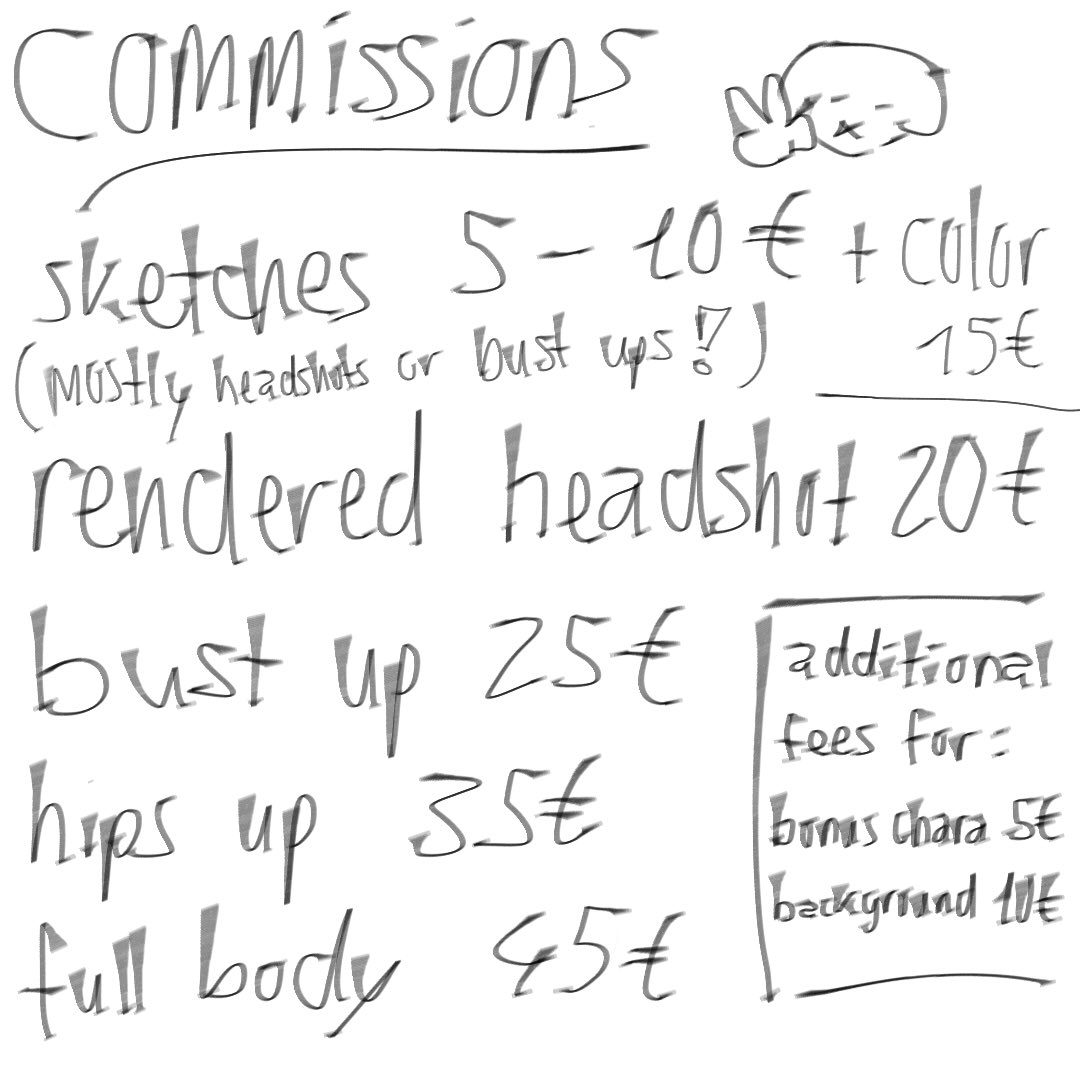 commissions
sketches 5 - 10€ + color
(mostly headshots or bust ups!?) 15€
rendered headshot 20€
bust up 25€
hips up 35€
full body 45€
additional
fees for:
bonus chara 5€
background 10€